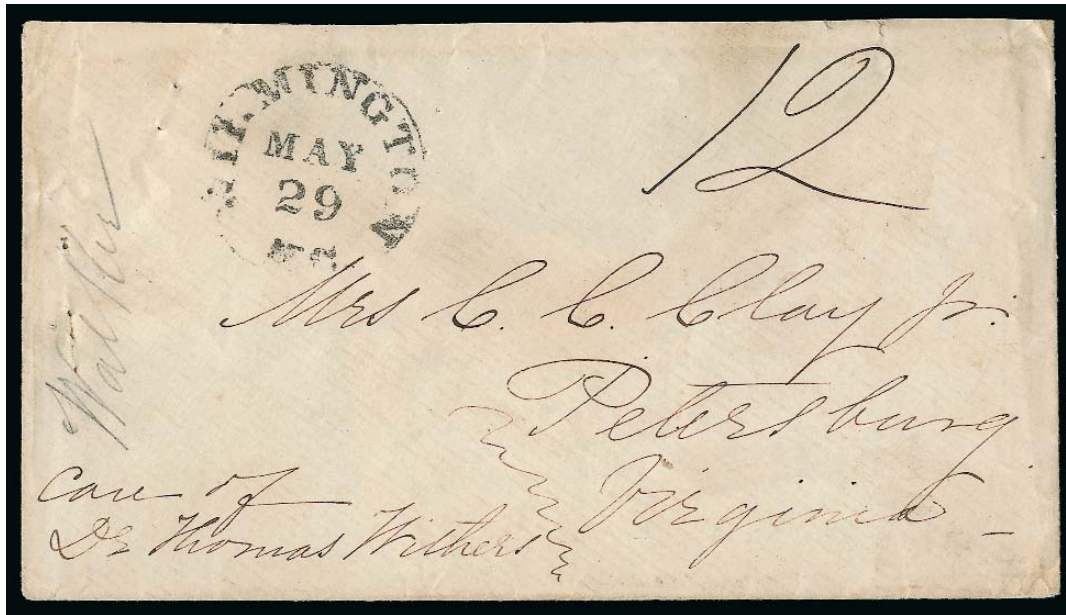 WILMINGTON
MAY
29
NC
12
Mrs C. C. Clay Jr.
Petersburg
Virginia -
care of
Dr Thomas Withers